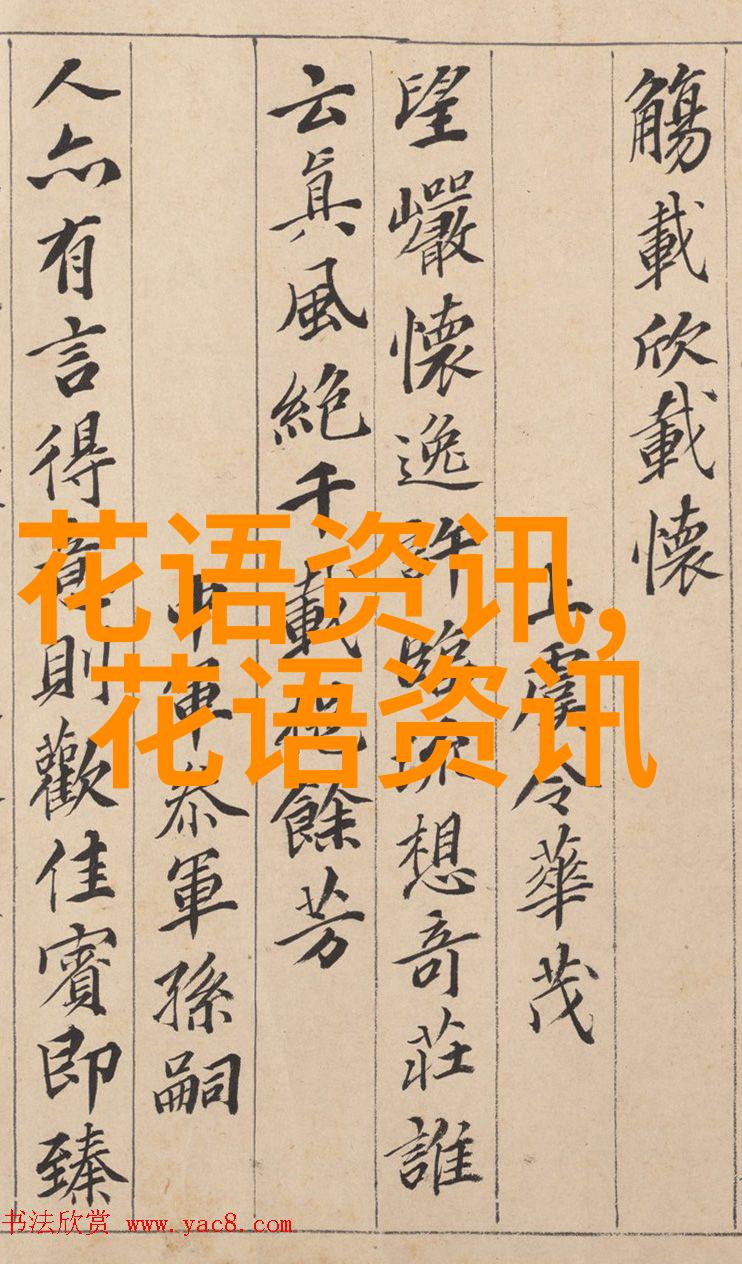 觴載欣載懷
上虞令華茂
望巗懷逸許臨流想奇莊誰
云眞風絶千載挹餘芳
中軍叅軍孫嗣
人亦有言得意則歡佳賓即臻
花语资讯,
花语资讯
书法欣赏 www.yac8.com